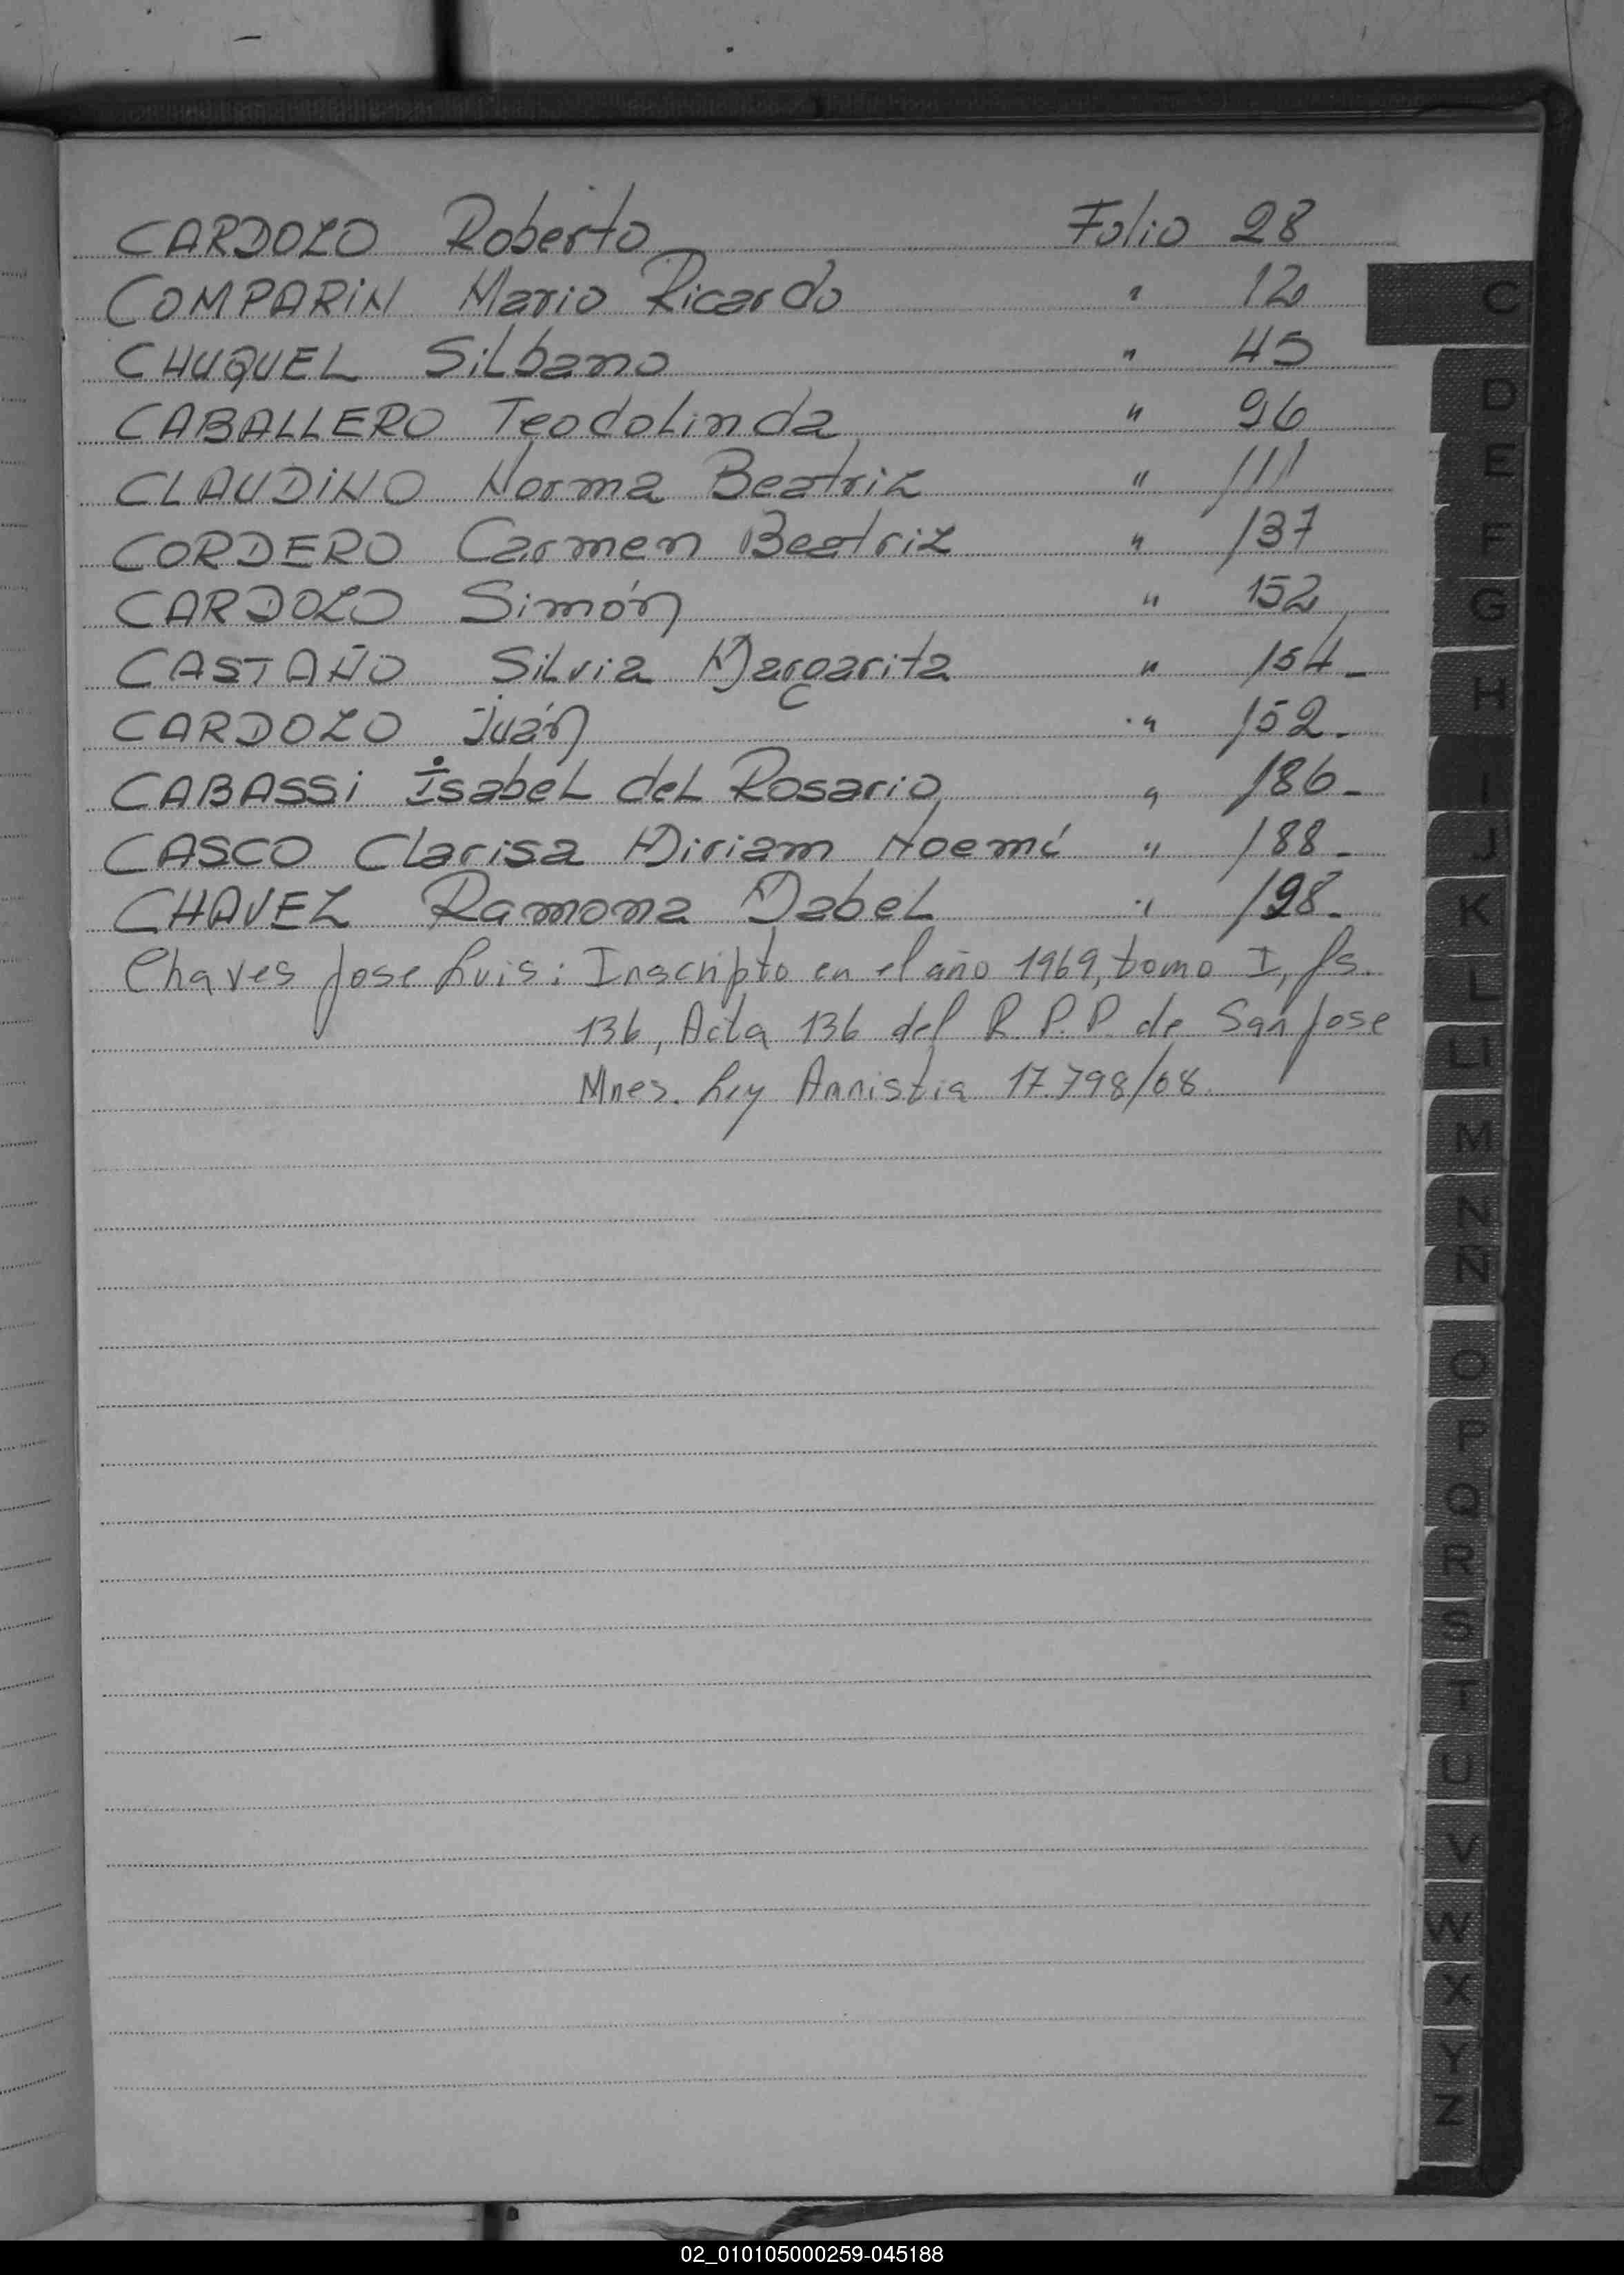 CARDOZO Roberto Folio 28
COMPARiN Mario Ricardo " 120
CHUQUEL Silbano " 45
CABALLERO Teodolinda " 96
CLAUDiNO Norma Beatriz " 111
CORDERO Carmen Beatriz " 137
CARDOZO Simón " 152
CASTAÑO Silvia Margarita " 154-
CARDOZO Juán " 152.
CABASSi Isabel del Rosario " 186-
CASCO Clarisa Miriam Noemí " 188-
CHAVEZ Ramona Mabel " 198-
Chaves Jose Luis: Inscripto en el año 1969, tomo I, fs.
136, Acta 136 del R.P.P. de San Jose
Mnes. Ley Amnistia 17.798/68.
C
D
E
F
G
H
I
J
K
L
Ll
M
N
Ñ
O
P
Q
R
S
T
U
V
W
X
Y
Z
02_010105000259-045188